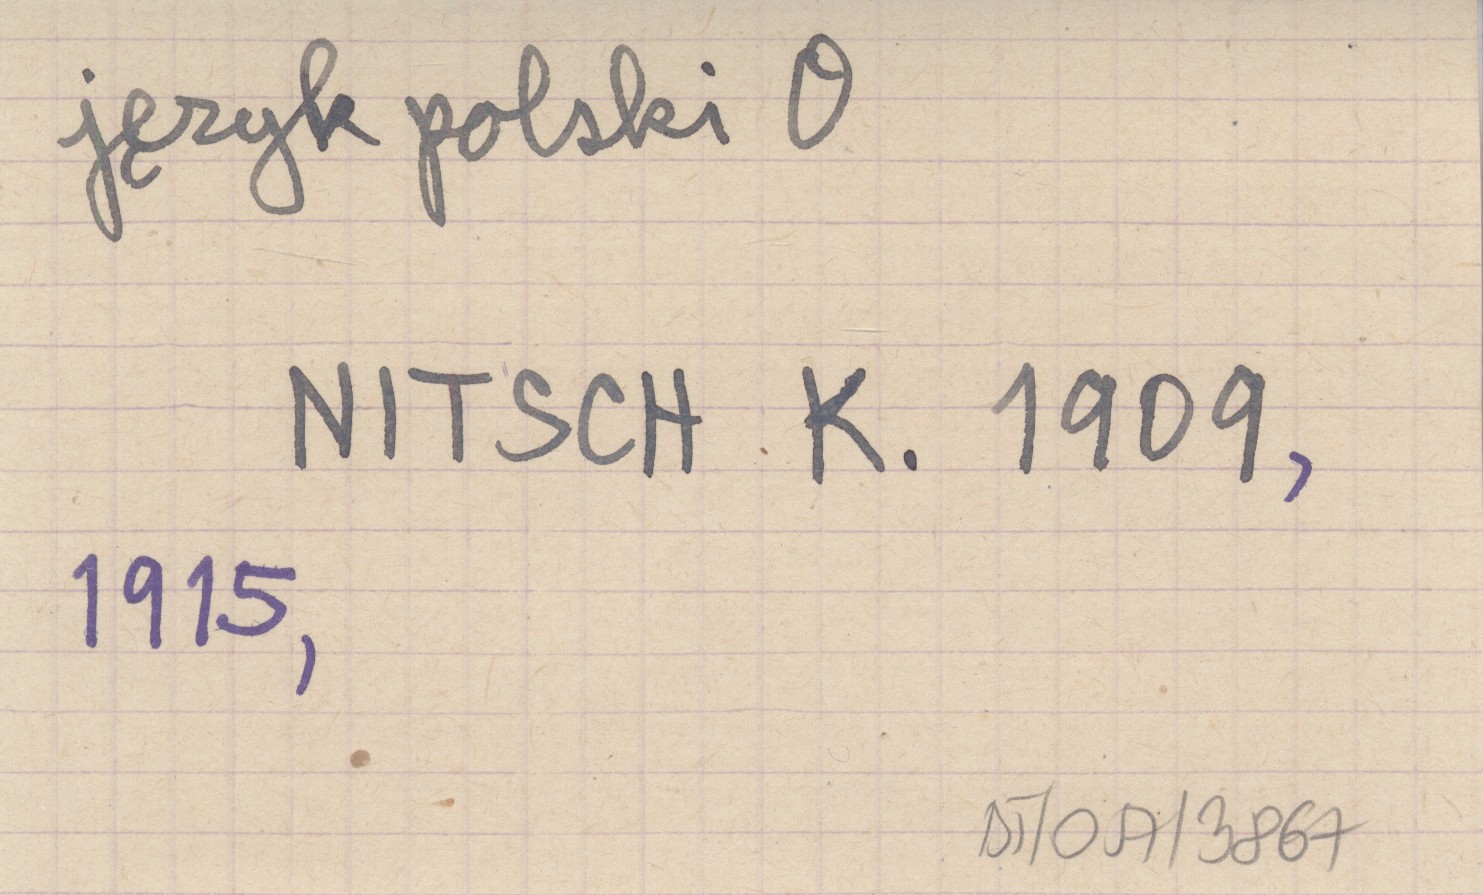 język polski O
NITSCH K. 1909,
1915,
DT/OA/3867